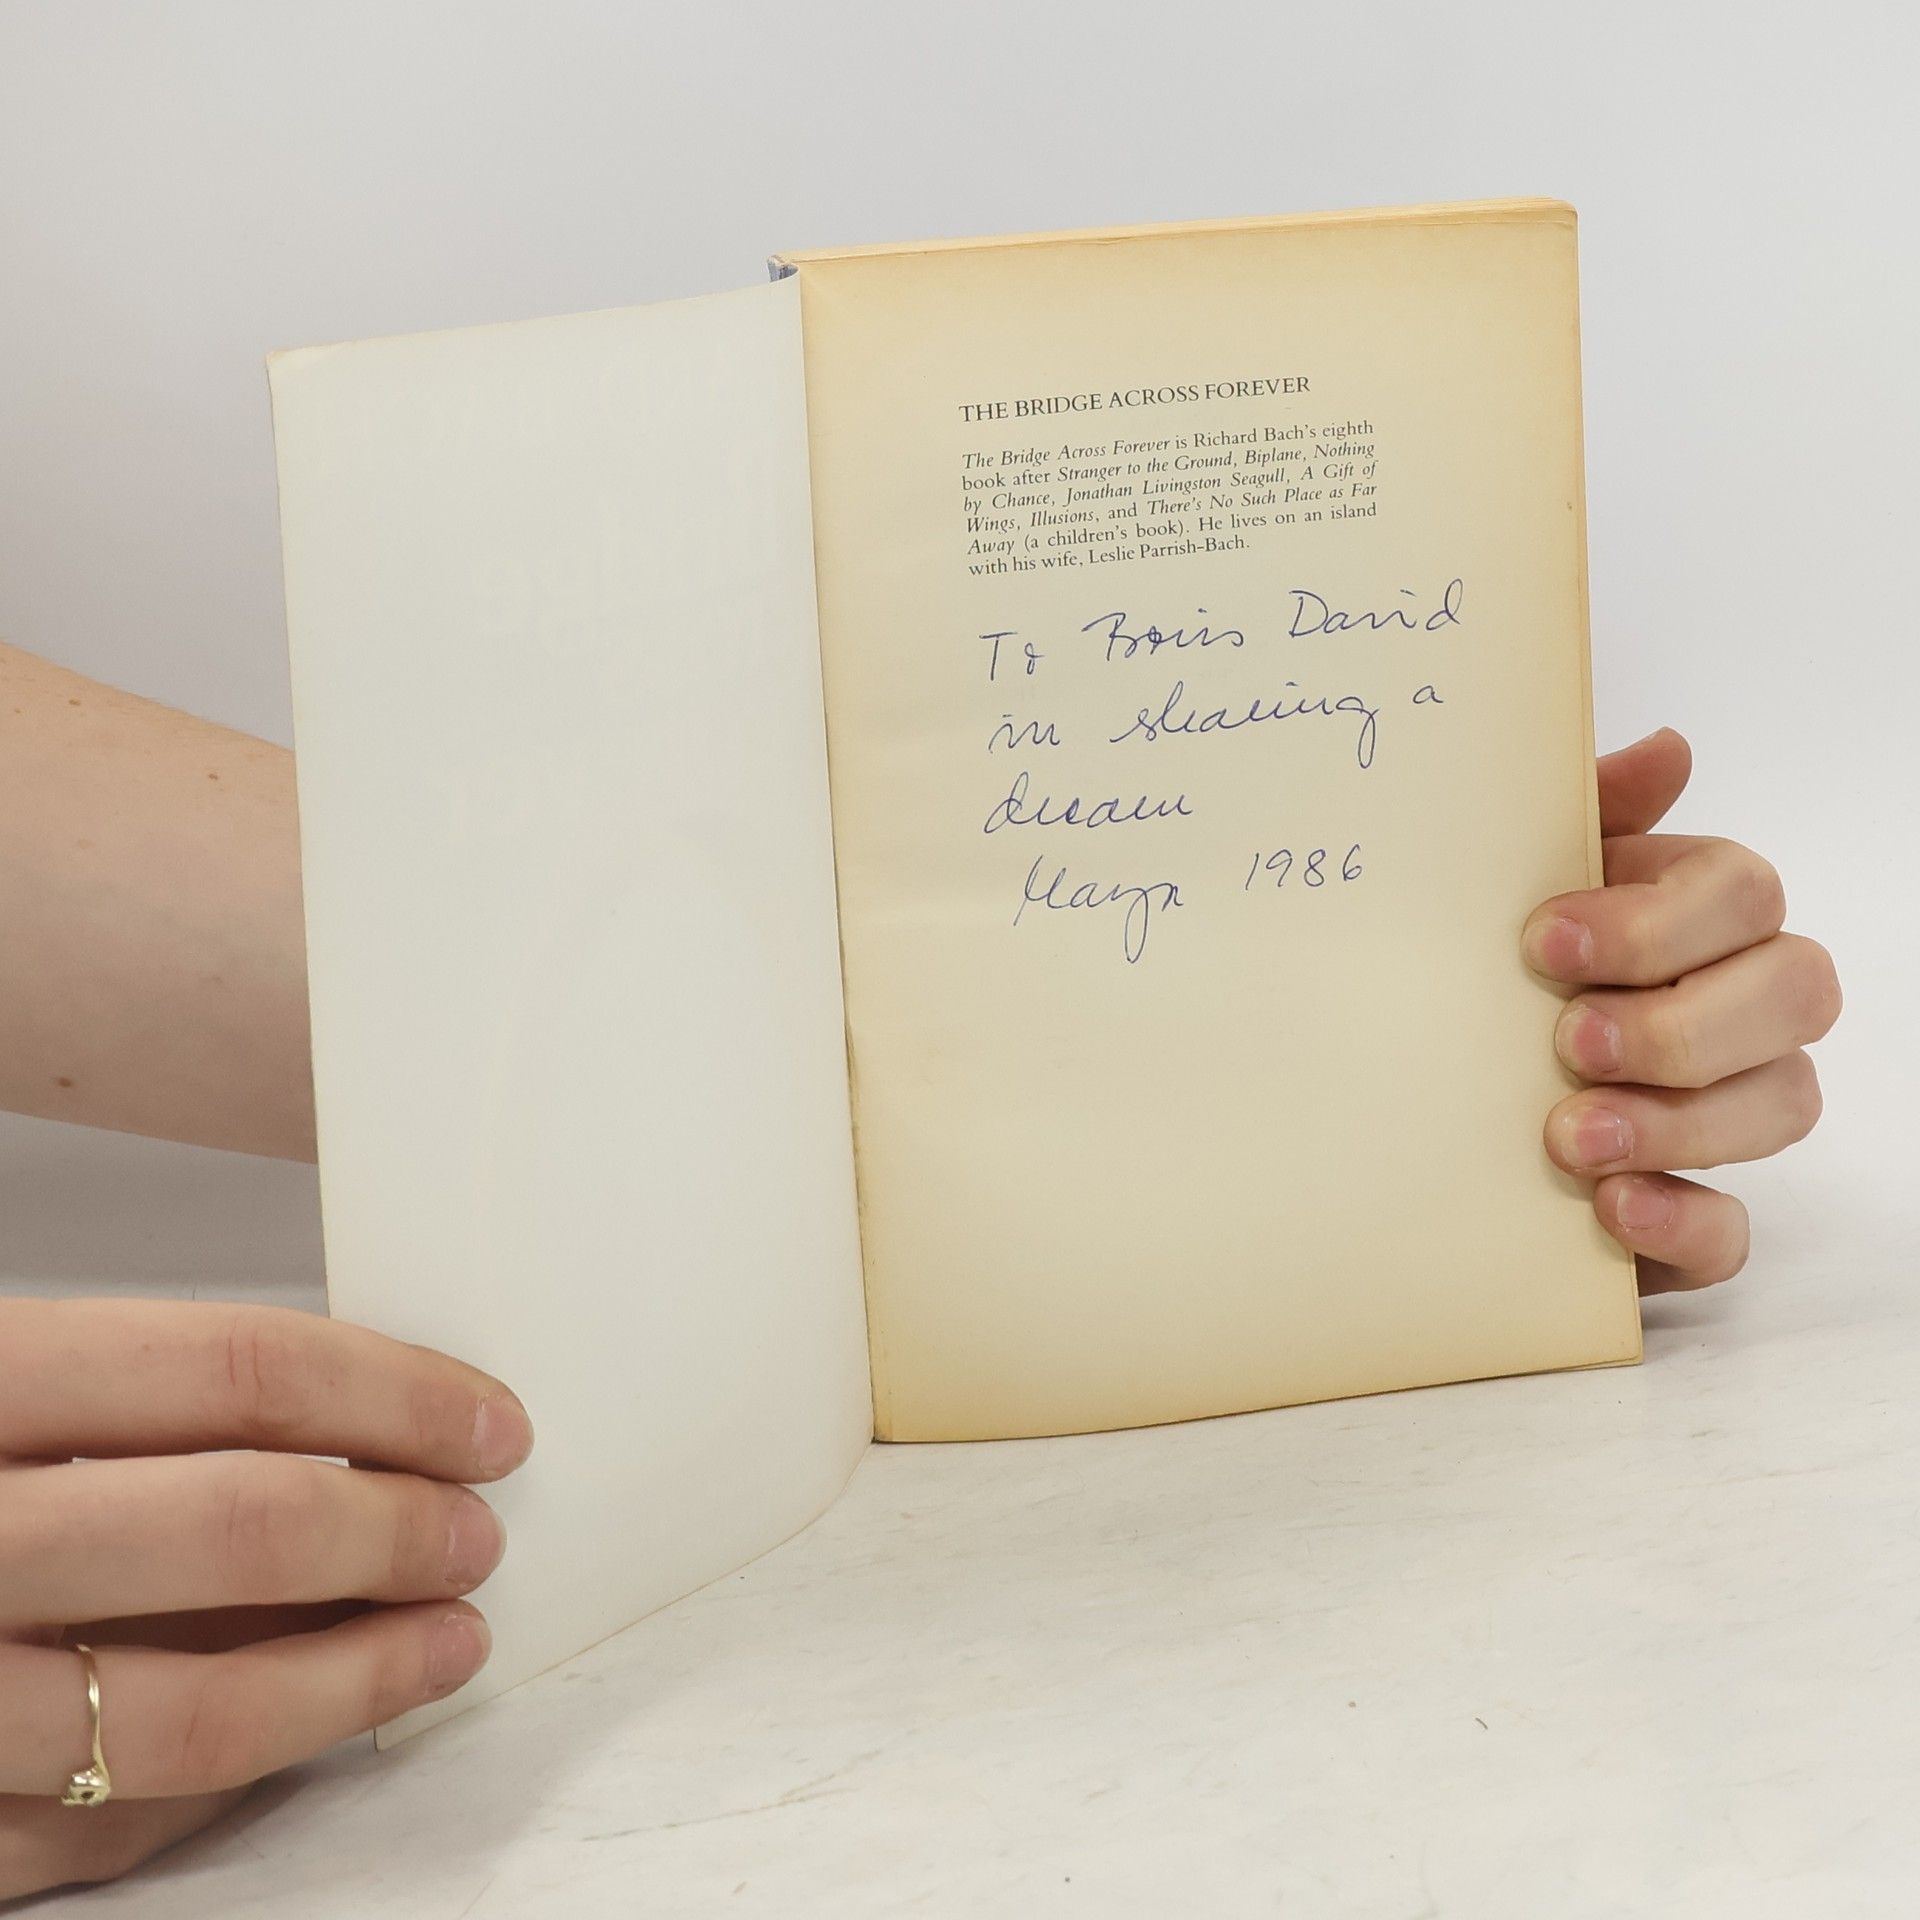 THE BRIDGE ACROSS FOREVER
The Bridge Across Forever is Richard Bach's eighth
book after Stranger to the Ground, Biplane, Nothing
by Chance, Jonathan Livingston Seagull, A Gift of
Wings, Illusions, and There's No Such Place as Far
Away (a children's book). He lives on an island
with his wife, Leslie Parrish-Bach.
To Boris David
in sharing a
dream
1986